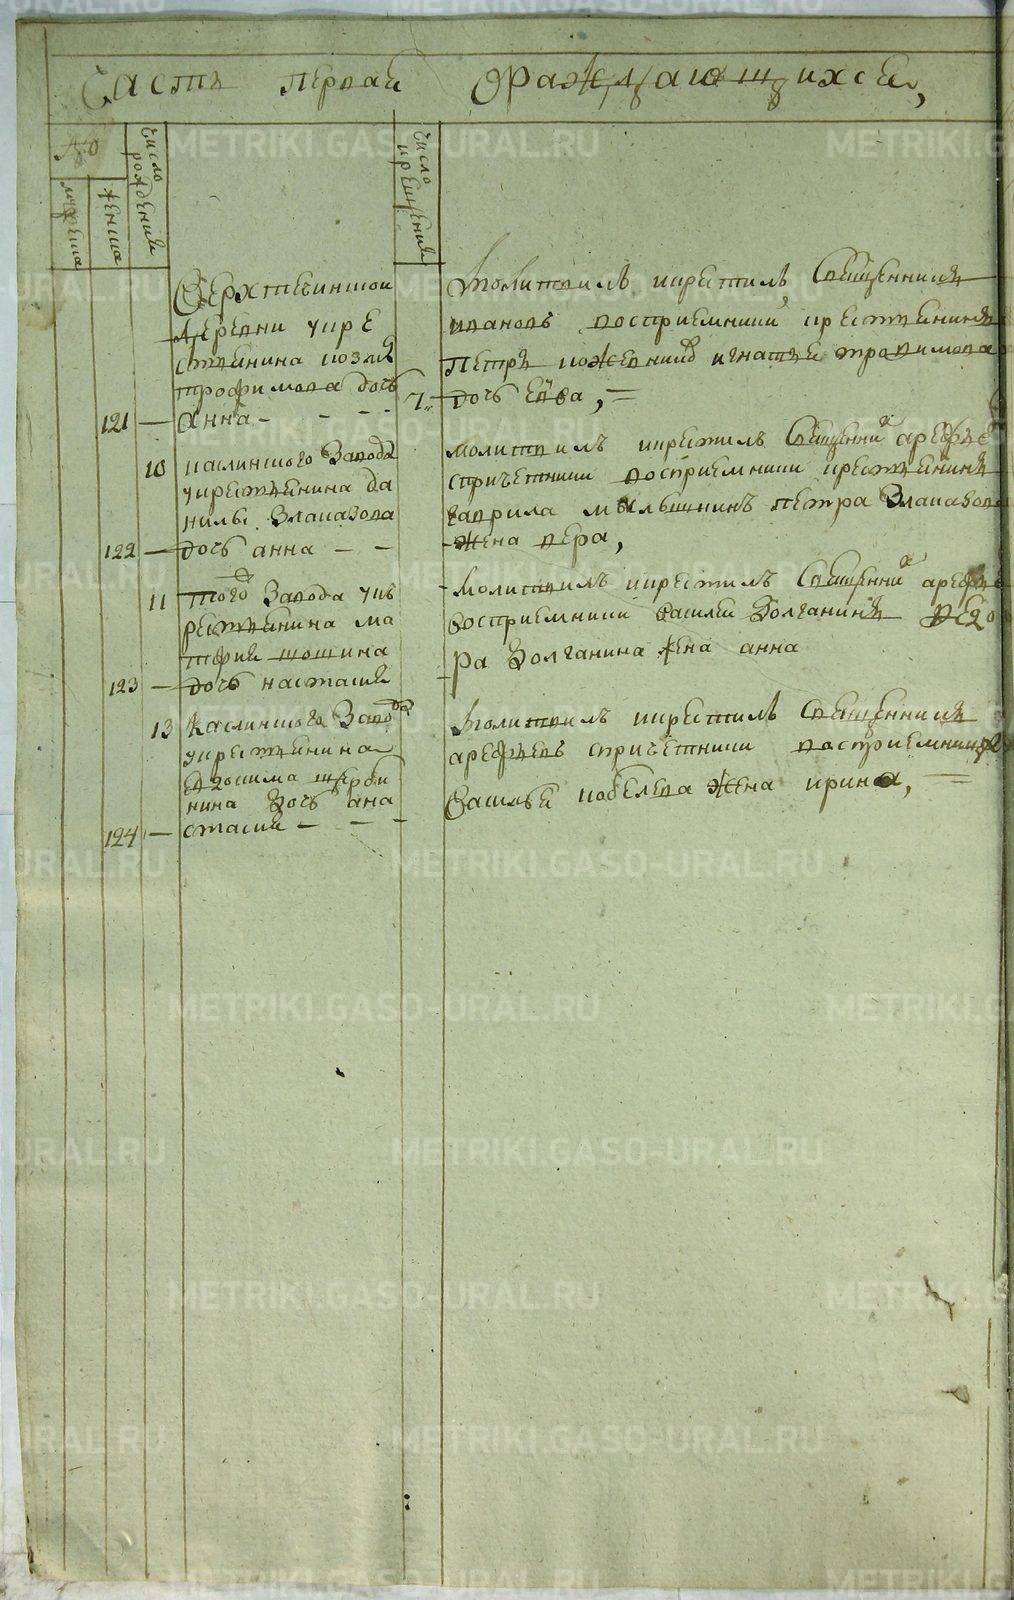 Часть первая О раждающихся,
No
мужеска
женска
число рождения
число крещения
Верхтечинской
деревни у кре
стьянина козмы
трофимова дочь
121 — Анна - - - -
7
молитвил, и крестил, Священникъ
ивановъ восприемники крестьянинъ
Петръ кожевников игнатья трофимова
дочь Евва, =
10 каслинского Завода
у крестьянина да
нилы Влаказова
122 — дочь анна - -
молитвилъ и крестилъ Священник арефьев
с причетники восприемники крестьянинъ
гаврила мякишнинъ петра Влаказова
жена вера,
11 того Завода у кре
стьянина ма
тфия шошина
123 — дочь настасия
молитвилъ и крестилъ Священник арефьев
восприемники василей Долганинъ Федо
ра Долганина жена анна
13 Каслинского Завода
у крестьянина
Евдокима щерби
нина дочь ана
124 — стасия - - -
Молитвилъ и крестилъ священникъ
арефьевъ с причетники восприемники
Василья кобелева жена ирина, =
METRIKI.GASO-URAL.RU